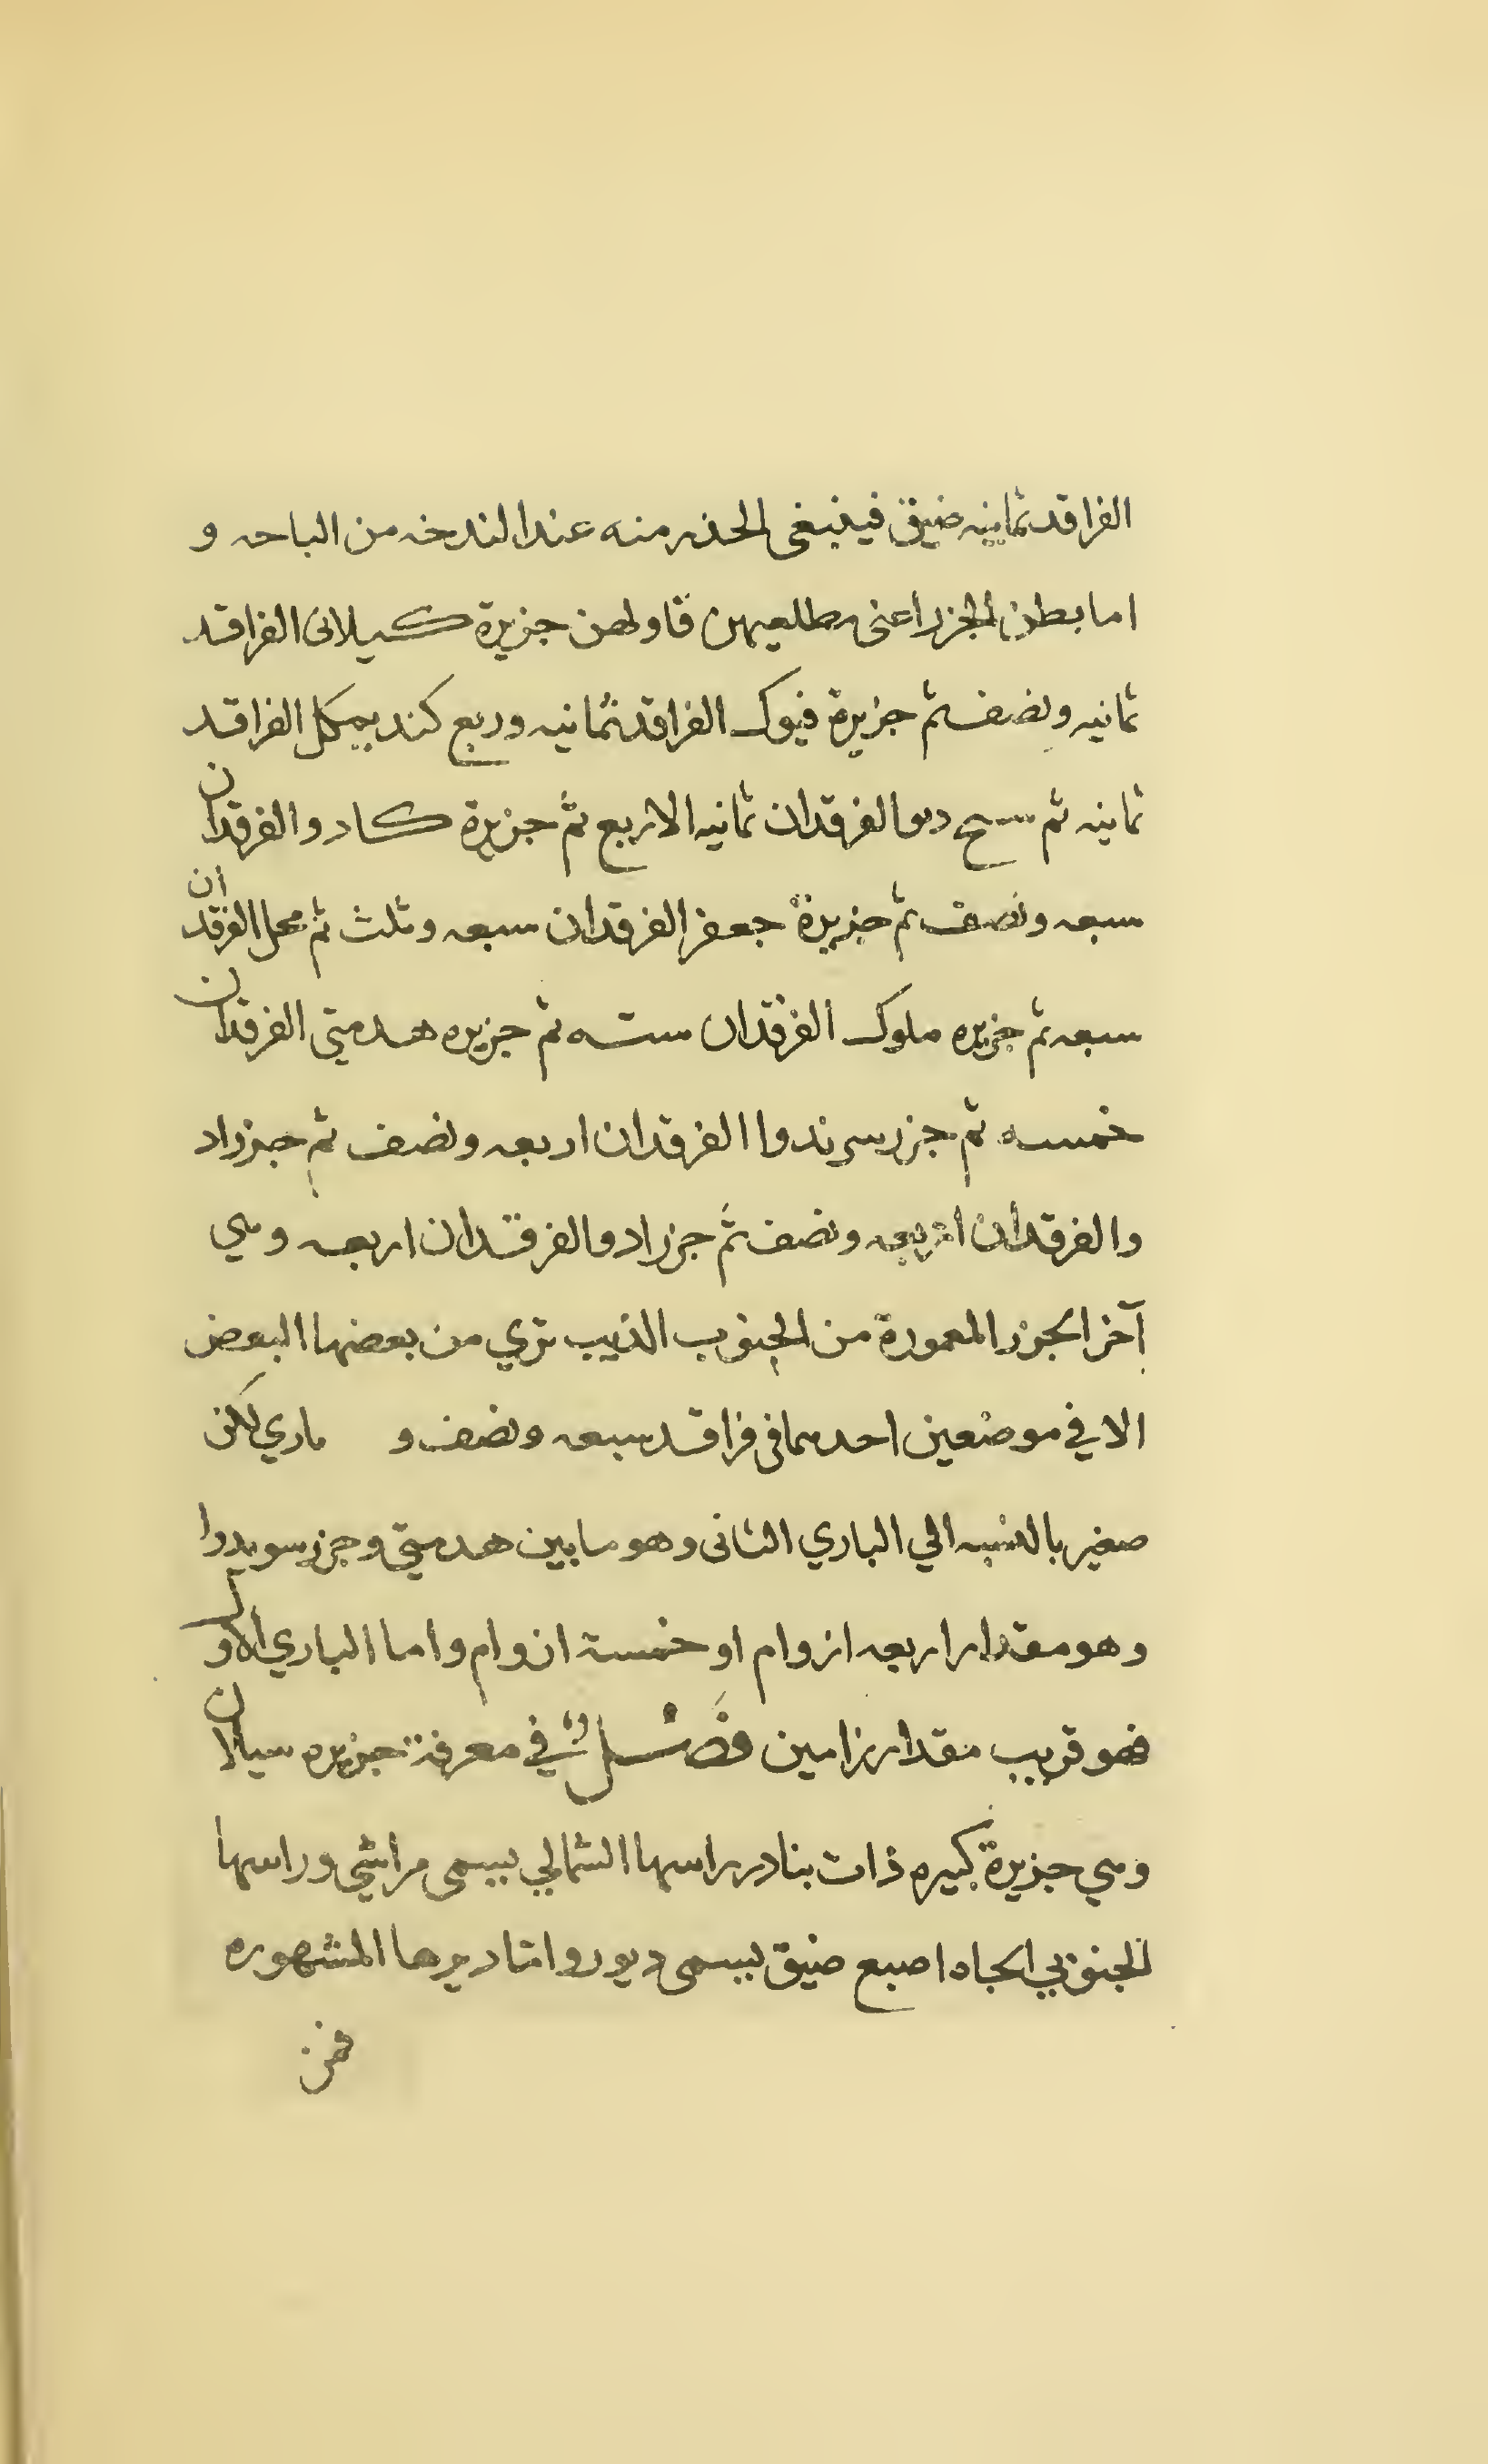 الفراقد ثمانيه ضيق فينبغى الحذر منه عند الندخه من الباحه و
اما بطن الجزر اعنى مطلعيهن فاولهن جزيرة كيلانى الفراقد
ثمانيه ونصف ثم جزيرة فيوك الفراقد ثمانيه وربع كنديكل الفراقد
ثمانيه ثم ديو الفرقدان ثمانيه الا ربع ثم جزيرة كادو الفرقدان
سبعه ونصف ثم جزيرة جعفر الفرقدان سبعه وثلث ثم محل الفرقدان
سبعه ثم جزيره ملوك الفرقدان سته ثم جزيره هدمتى الفرقدان
خمسه ثم جزر سوندوا الفرقدان اربعه ونصف ثم جزر اد
والفرقدان اربعه ونصف ثم جزر ادو الفرقدان اربعه وهي
آخر الجزر المعمورة من الجنوب الذيب تري من بعضها البعض
الا في موضعين احدهما فى فراقد سبعه ونصف و ماري لكن
صغير بالنسبه الي الباري الثانى وهو ما بين هدمتي وجزر سويدوا
وهو مقدار اربعه ازوام او خمسة ازوام واما الباري الاول
فهو قريب مقدار زامين فصل في معرفة جزيره سيلان
وهي جزيرة كبيره ذات بنادر راسها الشمالي يسمى مراشي وراسها
الجنوبي الجاه اصبع ضيق يسمى ديورو امتا ديرها المشهوره
فمن